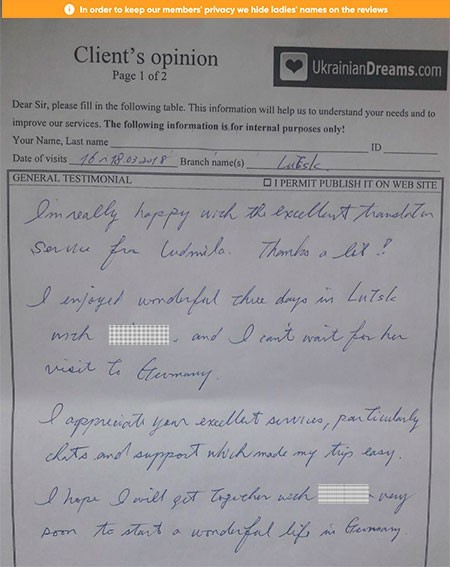 In order to keep our members' privacy we hide ladies' names on the reviews
Client's opinion
Page 1 of 2
UkrainianDreams.com
Dear Sir, please fill in the following table. This information will help us to understand your needs and to
improve our services. The following information is for internal purposes only!
Your Name, Last name ID
Date of visits 16 ~ 18.03.2018 Branch name(s) Lutsk
GENERAL TESTIMONIAL ☐ I PERMIT PUBLISH IT ON WEB SITE
I'm really happy with the excellent translation
service for Ludmila. Thanks a lot!
I enjoyed wonderful three days in Lutsk
with , and I can't wait for her
visit to Germany.
I appreciate your excellent services, particularly
chats and support which made my trip easy.
I hope I will get together with very
soon to start a wonderful life in Germany.